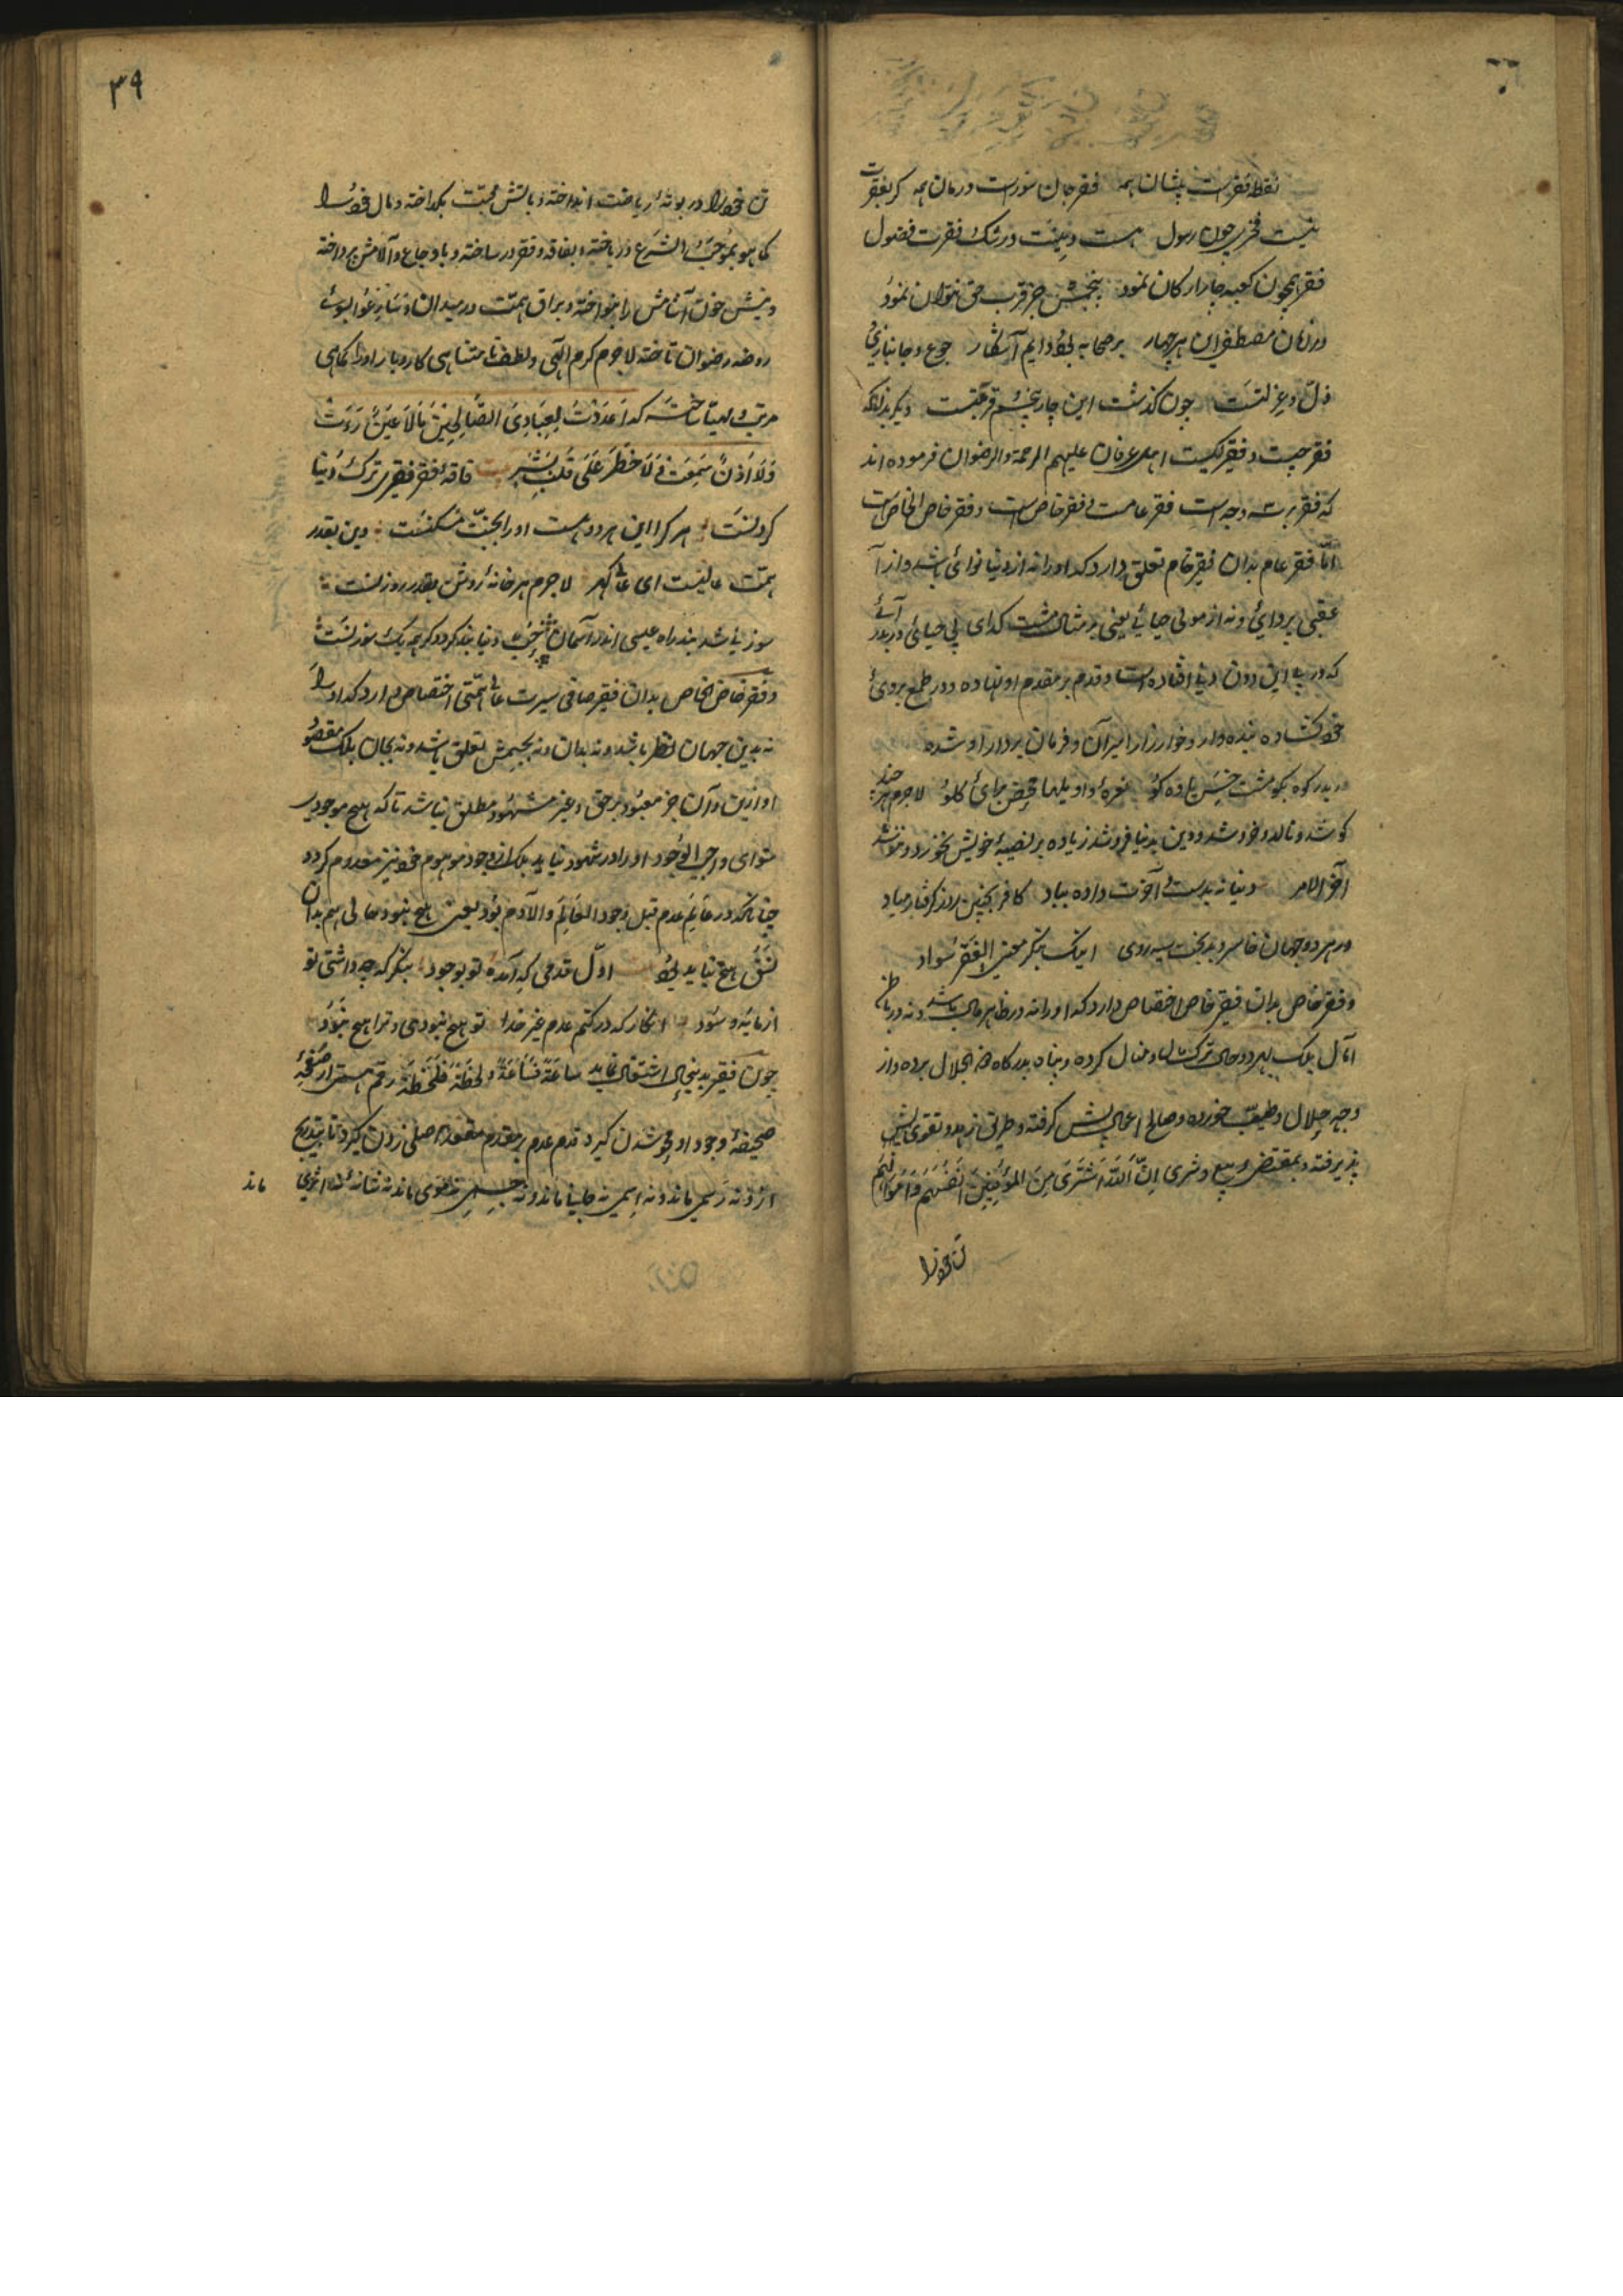 نقطه فقرست پیشان همه فقر جان سوزست درمان همه گر بفقرت
نیست فخری چون رسول هست دینت در شک فقرت فضول
فقر همچون کعبه چار ارکان نمود پنجمش جز قرب حق نتوان نمود
در زمان مصطفی این هر چهار بر صحابه بود دایم آشکار جوع و جانبازی
ذل و غربتست چون گذشت این چار پنجم قربتست دیگر بدانکه
فقر چیست و فقیر کیست اهل عرفان علیهم الرحمة والرضوان فرموده اند
که فقر بر سه وجه است فقر عام است و فقر خاص است و فقر خاص الخاص است
امّا فقر عام بدان فقیر خام تعلق دارد که او را نه از دنیا نوائی باشد و از
عقبی پروائی و نه از مولی حیائی یعنی بر مثال مشت گدای بی حیائی در بدر
که در پی این دون دنیا افتاده است و قدم بر مقدم او نهاده و در طمع بروی
خود کشاده بنده وار و خوار زار اسیر آن و فرمان بردار او شده
در بدر کوه بکو مشت خسیس یاوه گو نعره و اویلها محض برای گلو لاجرم هر چند
کوشد و نالد و خروشد و دین بدنیا فروشد زیاده بر نصیبه خویش نخورد و ننوشد
آخر الامر دنیا نه بدست و آخرت داده بباد کافر بچنین روز گرفتار مباد
در هر دو جهان خاسر و بدبخت سیه روی اینک بنگر معنی الفقر سواد
و فقر خاص بدان فقیر خاص اختصاص دارد که او را نه در ظاهر مال باشد و نه در باطن
آمال بلک بهر دو حال ترک مال و منال کرده و پناه بدرگاه ذو الجلال برده و از
وجه حلال و طیب خورده و صالح اعمال پیش گرفته و طریق زهد و تقوی پیش
پذیرفته و بمقتضی بیع و شری اِنَّ اللّهَ اشتَرَی مِنَ المؤمنینَ اَنفُسَهُم وَاَموالَهُم
تن خود را
۳۹
تن خود را در بوته ریاضت انداخته و بآتش محبّت بگداخته و مال خود را
کما هو بموجب الشرع در باخته و بفاقه و فقر در ساخته و با وجاع و آلامش پرداخته
و نیش خون آشامش را بنواخته و براق همّت در میدان و سارعوا بسوی
روضه رضوان تاخته لاجرم کرم الهی و لطف نامتناهی کار و بار او را کماهی
مرتب و مهیا ساخت که اَعدَدتُ لِعِبادِیَ الصّالِحینَ مَا لَا عَینٌ رَاَت
وَلَا اُذُنٌ سَمِعَت وَ لَا خَطَرَ عَلَی قَلبِ بَشَرٍ فاقه و فقر فقیر ترک دنیا
کردنست هر کرا این هر دو هست او را بجنّت مسکنست دین بقدر
همّت عالیست ای عالی گهر لاجرم هر خانه روشن بقدر روزنست
سوزنی شد بند راه عیسی اندر آسمان حب دنیا بند گردد گر همه یک سوزنست
و فقر خاص الخاص بدان فقیر صافی سیرت عالی همّتی اختصاص دارد که او را
نه بدین جهان نظر باشد و نه بدان و نه بجسمش تعلق باشد و نه بجان بلک مقصود
او ازین و آن جز معبود بر حق و غیر مشهود مطلق نباشد تا که هیچ موجودی
سوای واجب الوجود او را در شهود نیاید بلک از وجود موهوم خود نیز معدوم گردد
چنانکه در عالَم عدم قبل وجود العالَم والآدم بود یعنی هیچ نبود حالی هم بدان
نسق هیچ نباید بود اوّل قدمی که آمدۀ تو بوجود بنگر که چه داشتی تو
از مایه و سود انگار که در کتم عدم غیر خدا تو هیچ نبودی و ترا هیچ نبود
چون فقیر بدینحال اشتغال نماید ساعةً فَسَاعَةً ولحظةً فلحظةً رقم هستی از صفحۀ
صحیفۀ وجود او محو شدن گیرد قدم عدم بر مقدم مقصود اصلی زدن گیرد تا بتدریج
از و نه رسمی ماند و نه اسمی نه جانی ماند و نه جسمی نه نامی ماند نه نشانه نه اثری
ماند